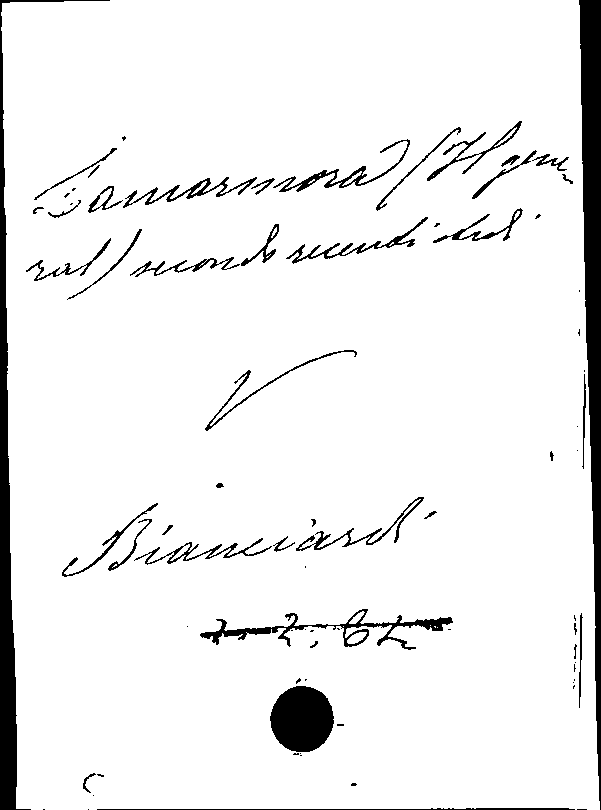 Lamarmora (Il gene-
ral) secondo recenti studi
V
Bianciardi
7. 2. 62
C